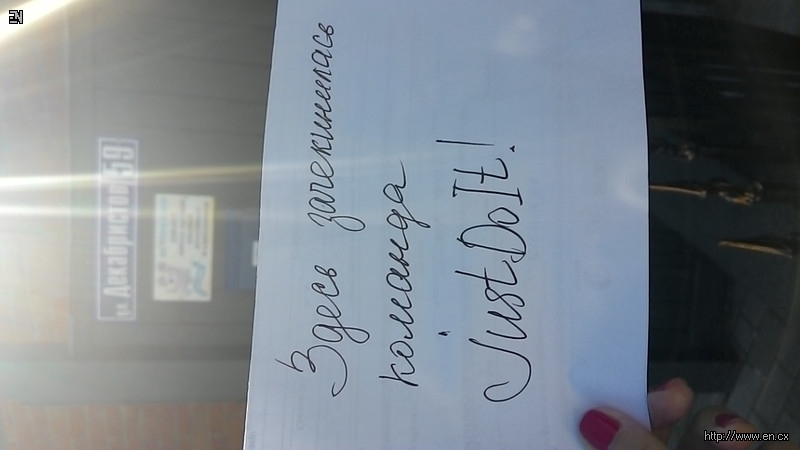 EN
ул. Декабристов 59
Здесь зачекинилась
команда
JustDoIt!
http://www.en.cx